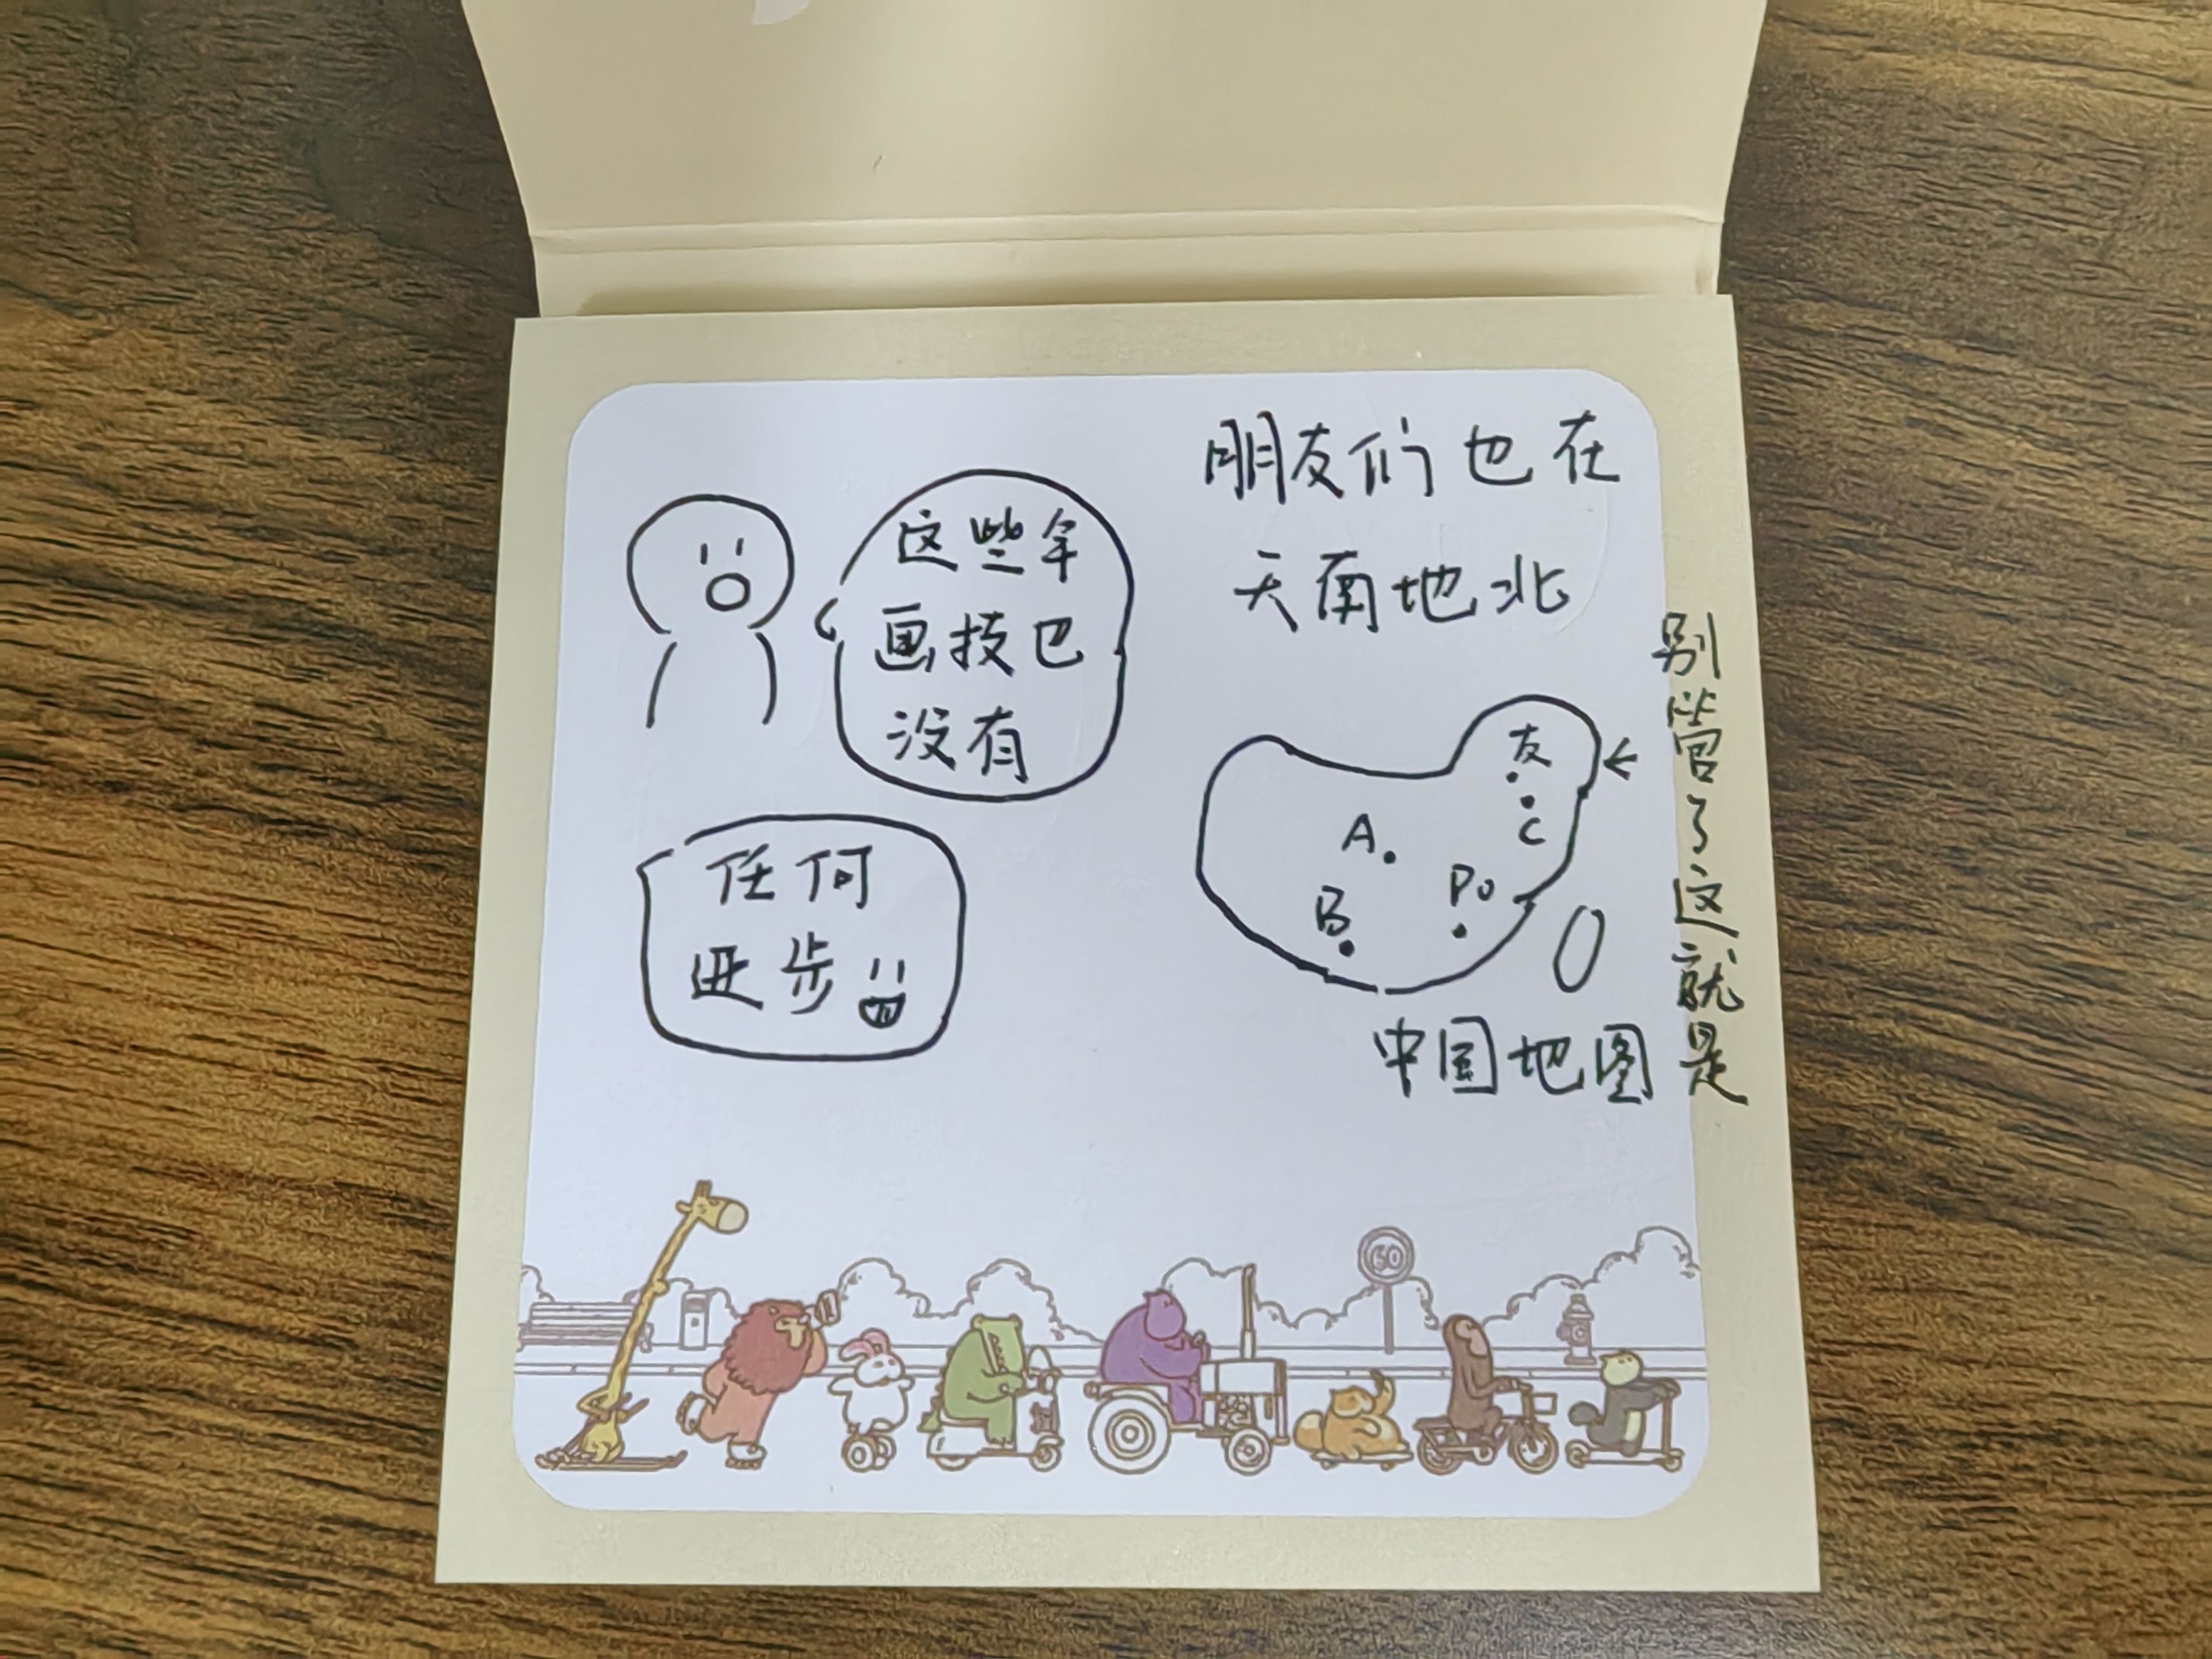 这些年
画技也
没有
任何
进步
朋友们也在
天南地北
友
C
A
Po
B
别管了这就是
中国地图
60